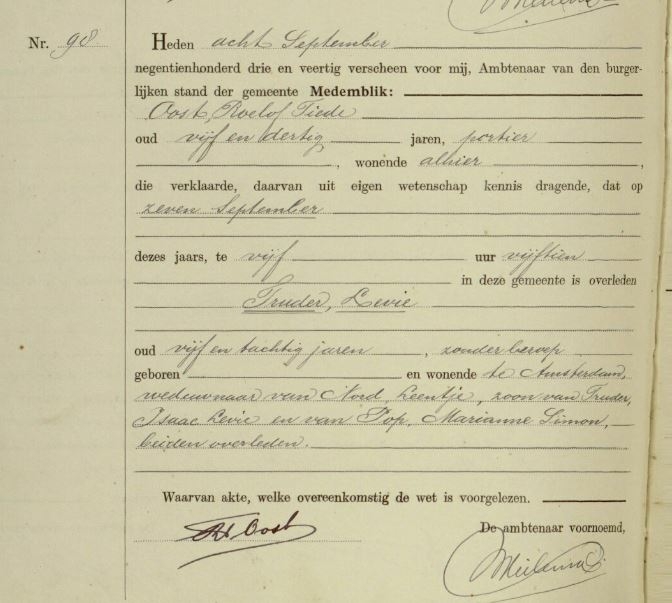 Nr. 98
Heden acht September
negentienhonderd drie en veertig verscheen voor mij, Ambtenaar van den burger-
lijken stand der gemeente Medemblik:
Oost, Roelof Tiede
oud vijf en dertig jaren, portier
, wonende alhier ,
die verklaarde, daarvan uit eigen wetenschap kennis dragende, dat op
zeven September
dezes jaars, te vijf uur vijftien
in deze gemeente is overleden
Truder, Levie
oud vijf en tachtig jaren , zonder beroep
geboren en wonende te Amsterdam,
weduwnaar van Nord, Leentje, zoon van Truder,
Isaac Levie en van Pop, Marianne Simon,
beiden overleden.
Waarvan akte, welke overeenkomstig de wet is voorgelezen.
De ambtenaar voornoemd,
Oost